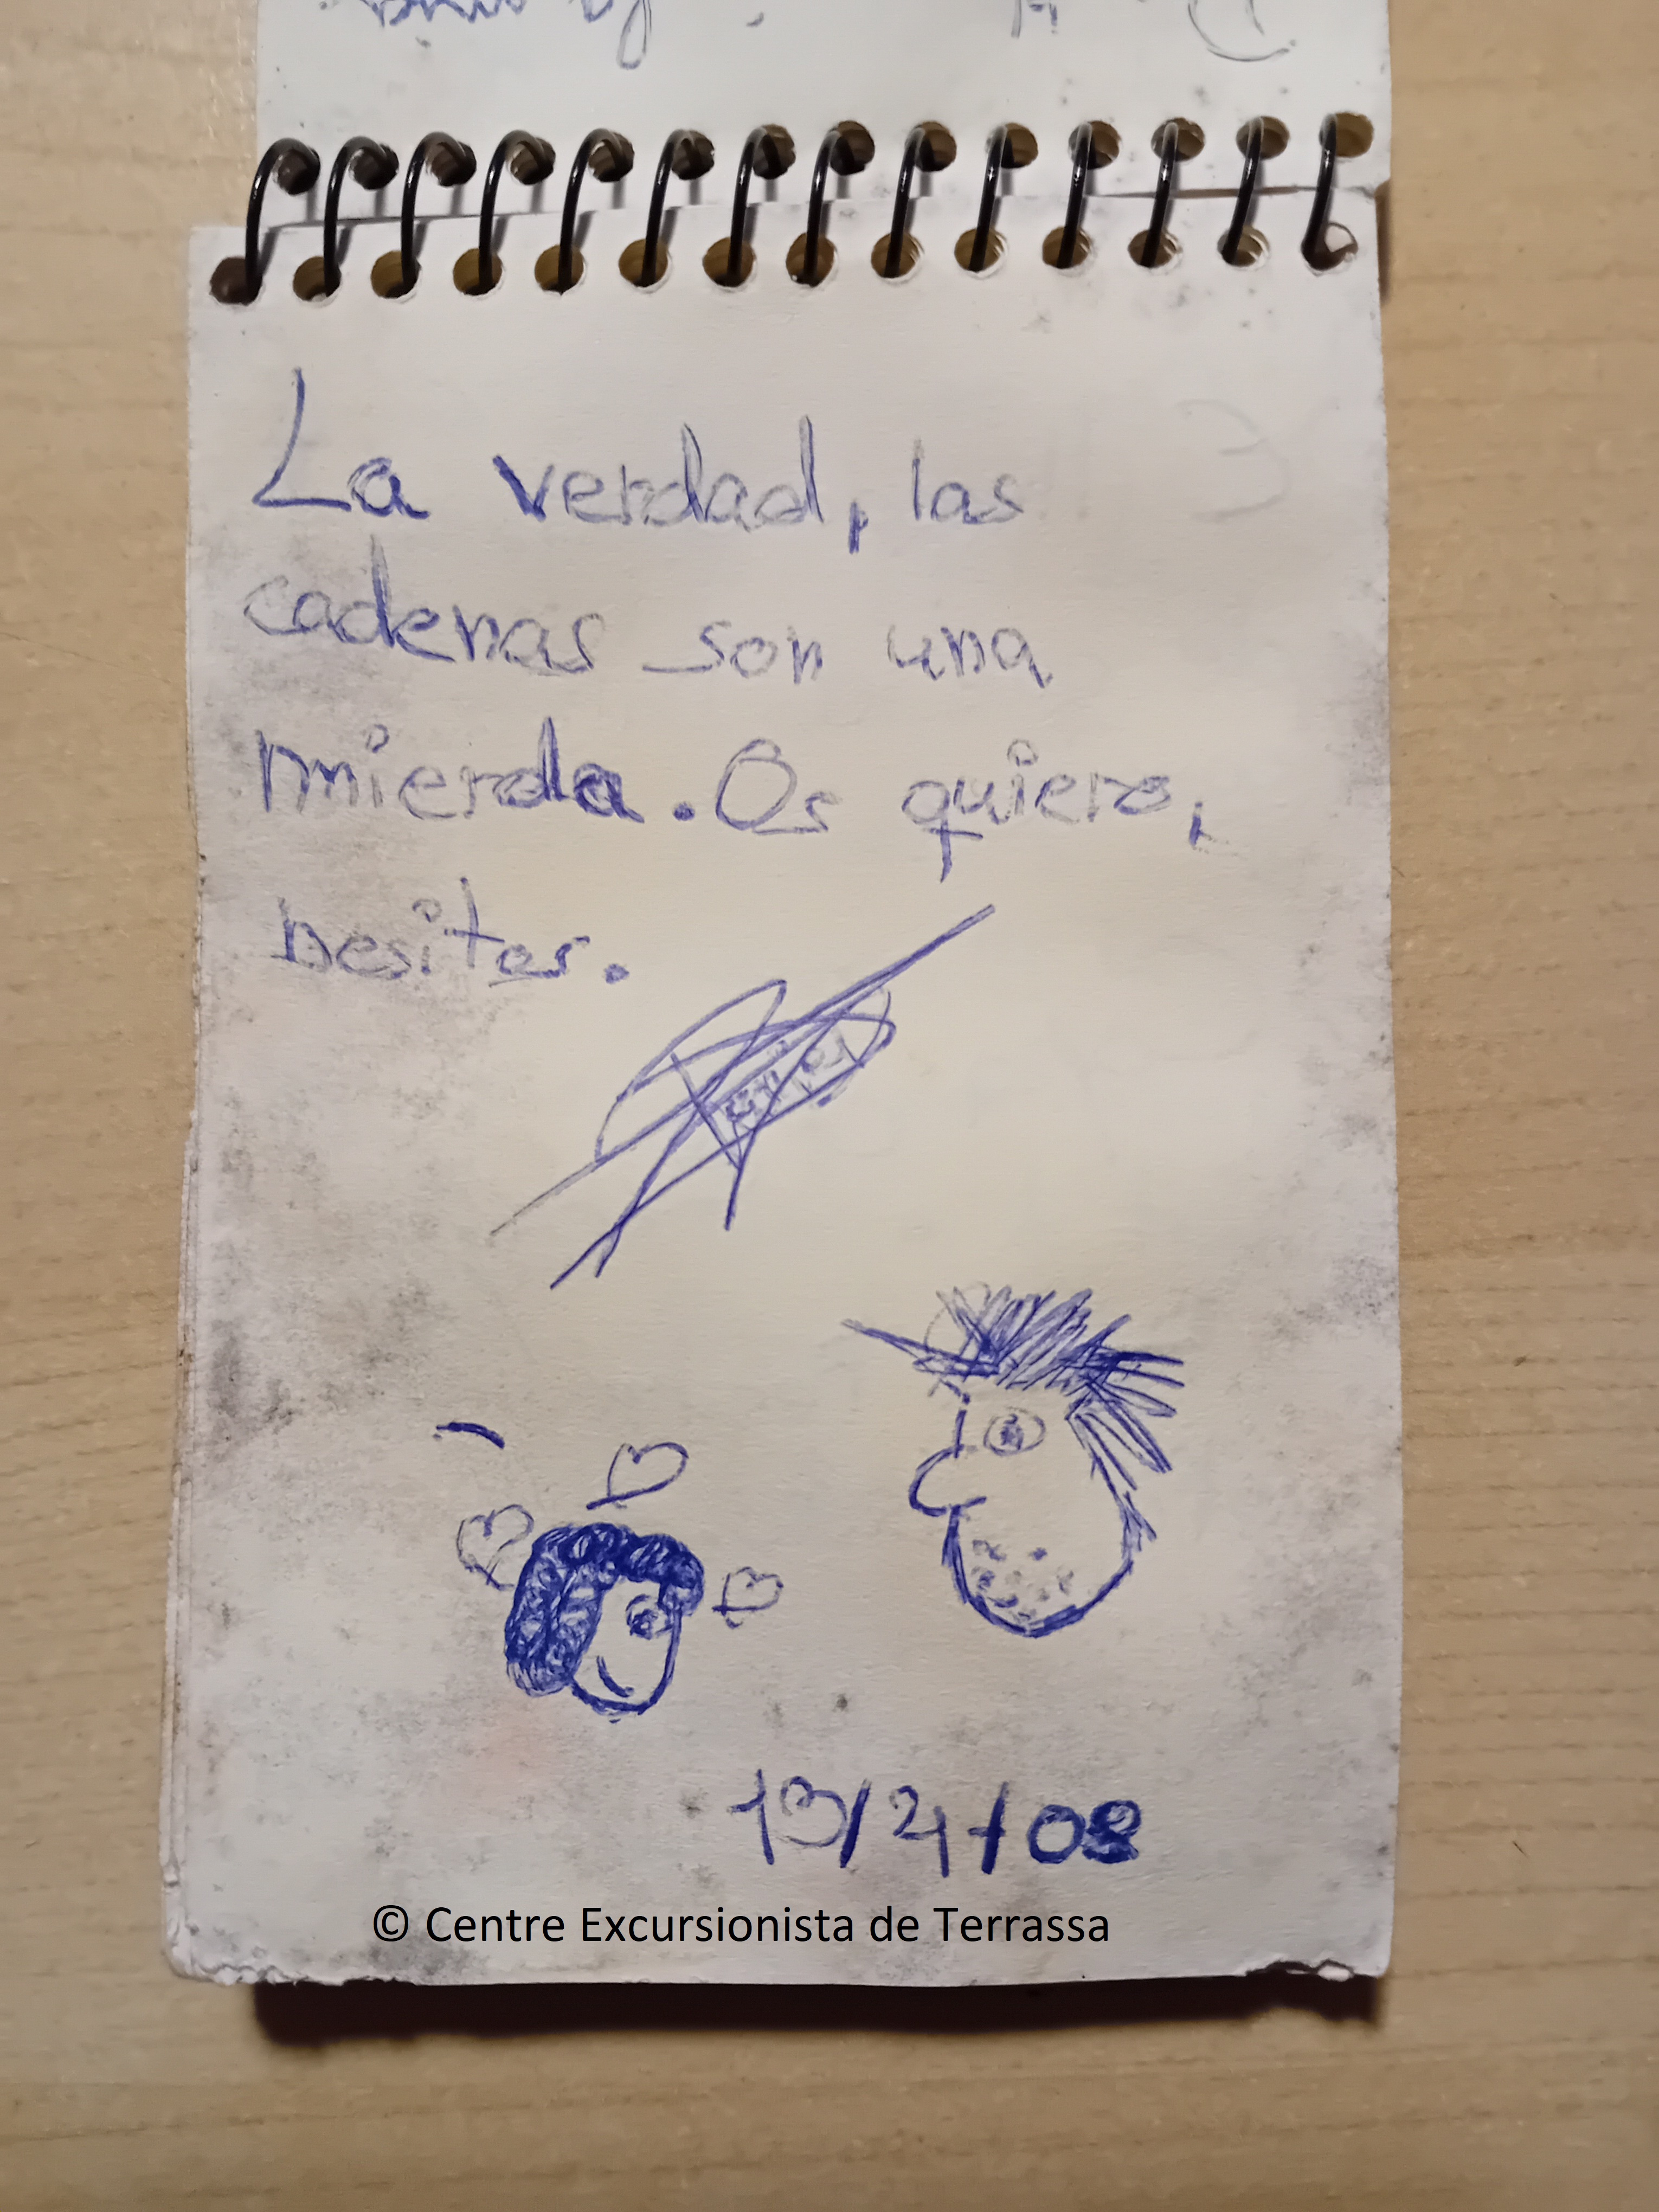 La verdad, las
cadenas son una
mierda. Os quiero,
besitos.
13/4/08
© Centre Excursionista de Terrassa